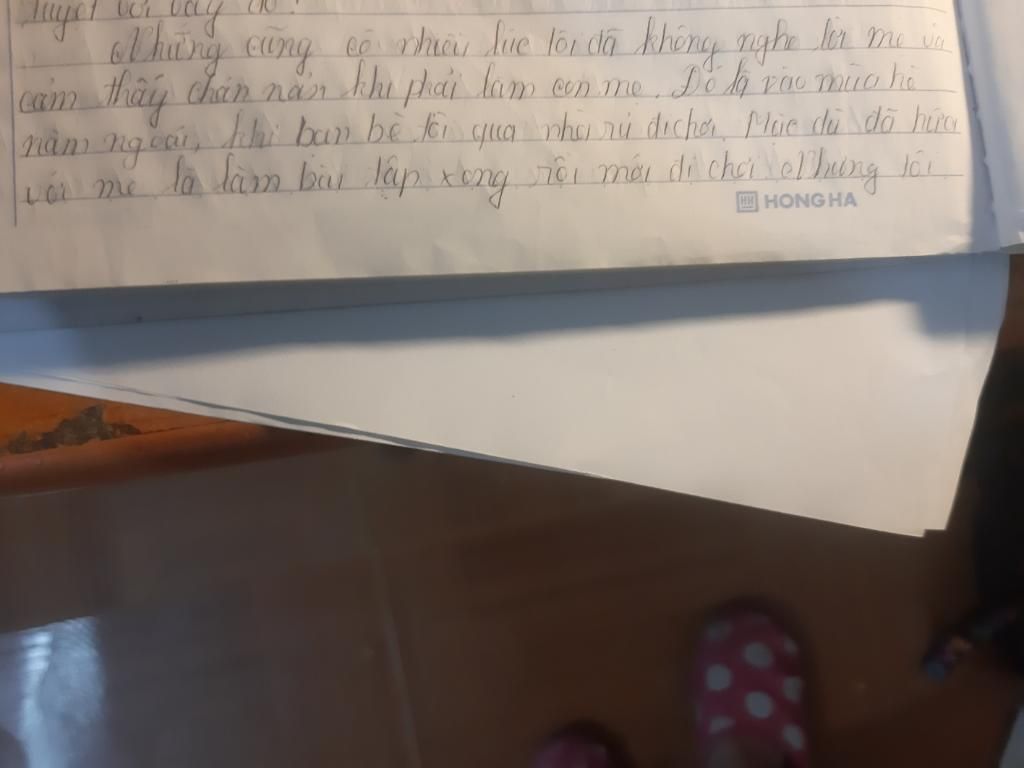 tuyệt vời vậy đó!
Nhưng cũng có nhiều lúc tôi đã không nghe lời mẹ và
cảm thấy chán nản khi phải làm con mẹ. Đó là vào mùa hè
năm ngoái, khi bạn bè tôi qua nhà rủ đi chơi. Mặc dù đã hứa
với mẹ là làm bài tập xong rồi mới đi chơi. Nhưng tôi
HONG HA